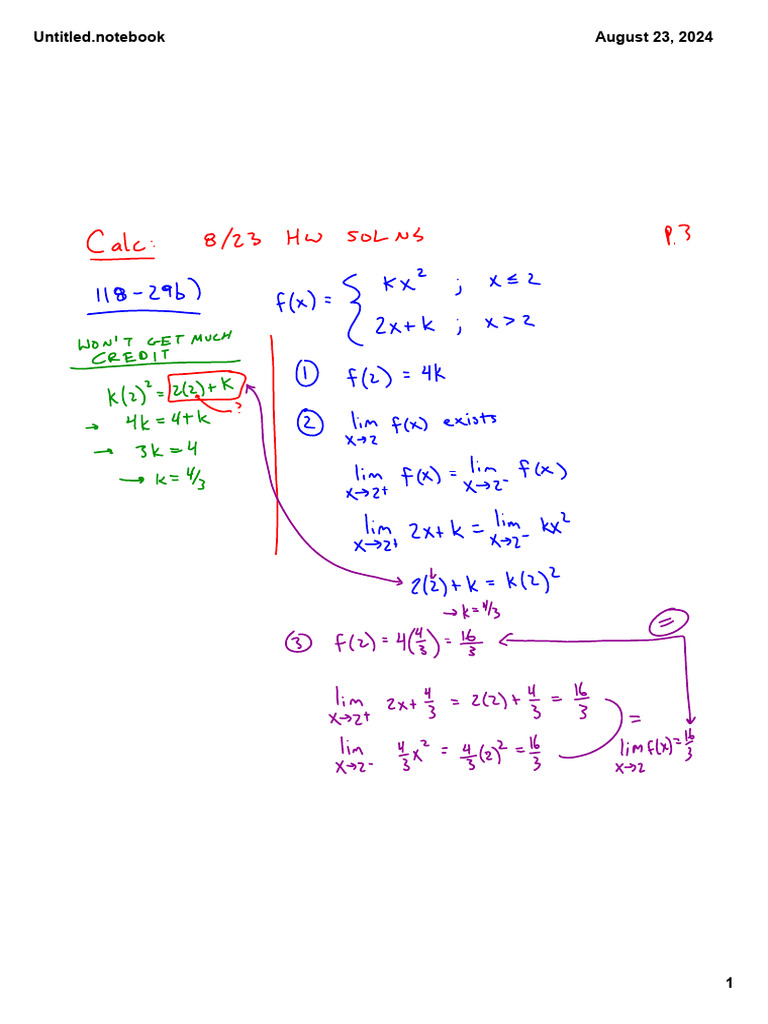 Untitled.notebook August 23, 2024
Calc: 8/23 HW SOLNS P.3
118-29b)
f(x) = { kx² ; x ≤ 2
2x+k ; x > 2
WON'T GET MUCH
CREDIT
k(2)² = 2(2)+k
?
→ 4k = 4+k
→ 3k = 4
→ k = 4/3
① f(2) = 4k
② lim x→2 f(x) exists
lim x→2⁺ f(x) = lim x→2⁻ f(x)
lim x→2⁺ 2x+k = lim x→2⁻ kx²
2(2)+k = k(2)²
→ k = 4/3
③ f(2) = 4(4/3) = 16/3
=
lim x→2⁺ 2x+4/3 = 2(2)+4/3 = 16/3
lim x→2⁻ 4/3x² = 4/3(2)² = 16/3
=
lim x→2 f(x) = 16/3
1